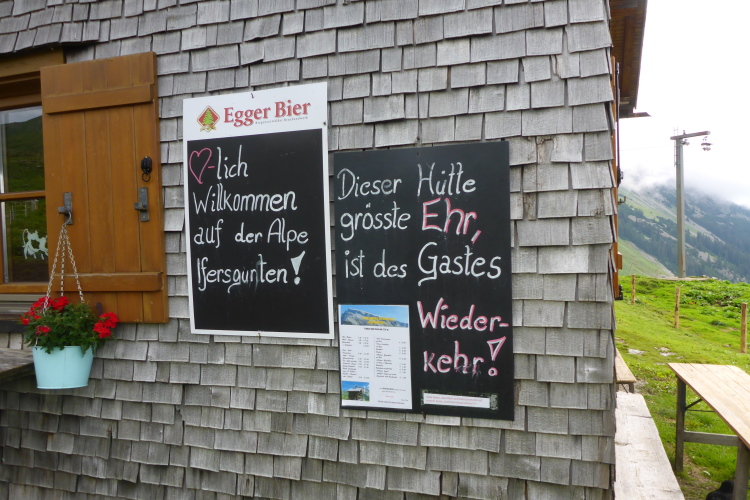 Egger Bier
♡-lich
Willkommen
auf der Alpe
Ifersgunten!
Dieser Hütte
grösste Ehr,
ist des Gastes
Wieder-
kehr!